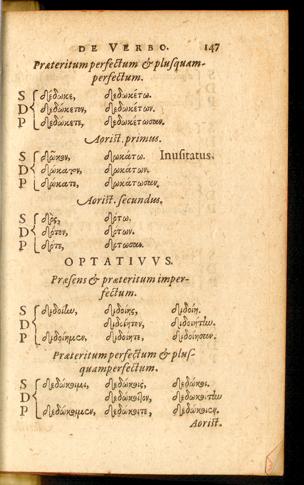 DE VERBO. 147
Præteritum perfectum & plusquam-
perfectum.
S δέδωκε, δεδωκέτω.
D δεδώκετον, δεδωκέτων.
P δεδώκετε, δεδωκέτωσαν.
Aorist. primus.
S δῶκον, δωκάτω. Inusitatus.
D δώκατον, δωκάτων.
P δώκατε, δωκάτωσαν.
Aorist. secundus.
S δὸς, δότω.
D δότον, δότων.
P δότε, δότωσαν.
OPTATIVVS.
Præsens & præteritum imper-
fectum.
S διδοίην, διδοίης, διδοίη.
D διδοίητον, διδοιήτην.
P διδοίημεν, διδοίητε, διδοίησαν.
Præteritum perfectum & plus-
quamperfectum.
S δεδώκοιμι, δεδώκοις, δεδώκοι.
D δεδώκοιτον, δεδωκοίτην
P δεδώκοιμεν, δεδώκοιτε, δεδώκοιεν.
Aorist.